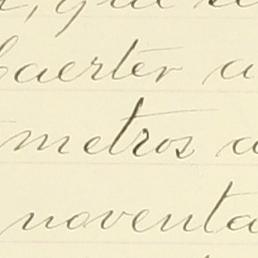 que se
Caerter a
metros a
noventa